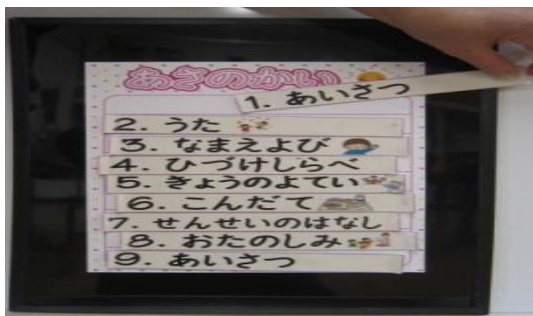 あさのかい
1. あいさつ
2. うた
3. なまえよび
4. ひづけしらべ
5. きょうのよてい
6. こんだて
7. せんせいのはなし
8. おたのしみ
9. あいさつ